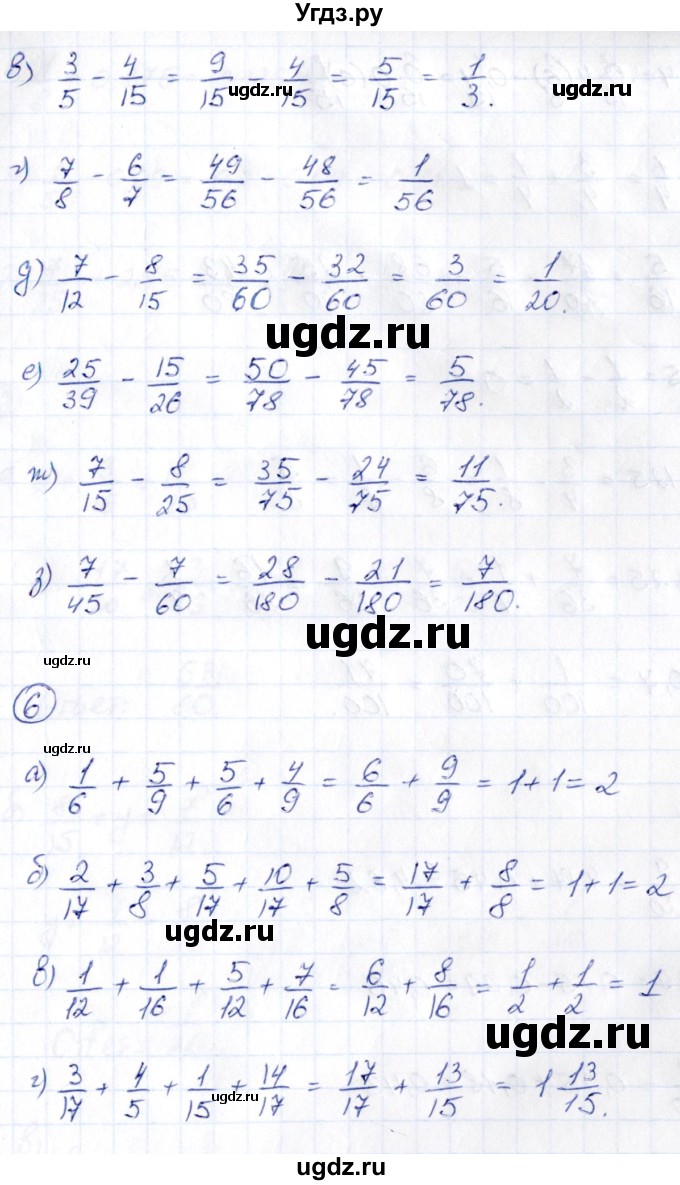 Угдз.ру
в) 3/5 - 4/15 = 9/15 - 4/15 = 5/15 = 1/3.
ugdz.ru ugdz.ru ugdz.ru
г) 7/8 - 6/7 = 49/56 - 48/56 = 1/56
д) 7/12 - 8/15 = 35/60 - 32/60 = 3/60 = 1/20.
ugdz.ru
е) 25/39 - 15/26 = 50/78 - 45/78 = 5/78.
ж) 7/15 - 8/25 = 35/75 - 24/75 = 11/75.
з) 7/45 - 7/60 = 28/180 - 21/180 = 7/180.
ugdz.ru
ugdz.ru
6
ugdz.ru
а) 1/6 + 5/9 + 5/6 + 4/9 = 6/6 + 9/9 = 1 + 1 = 2
б) 2/17 + 3/8 + 5/17 + 10/17 + 5/8 = 17/17 + 8/8 = 1 + 1 = 2
ugdz.ru
в) 1/12 + 1/16 + 5/12 + 7/16 = 6/12 + 8/16 = 1/2 + 1/2 = 1
ugdz.ru
г) 3/17 + 4/5 + 1/15 + 14/17 = 17/17 + 13/15 = 1 13/15.
ugdz.ru
ugdz.ru